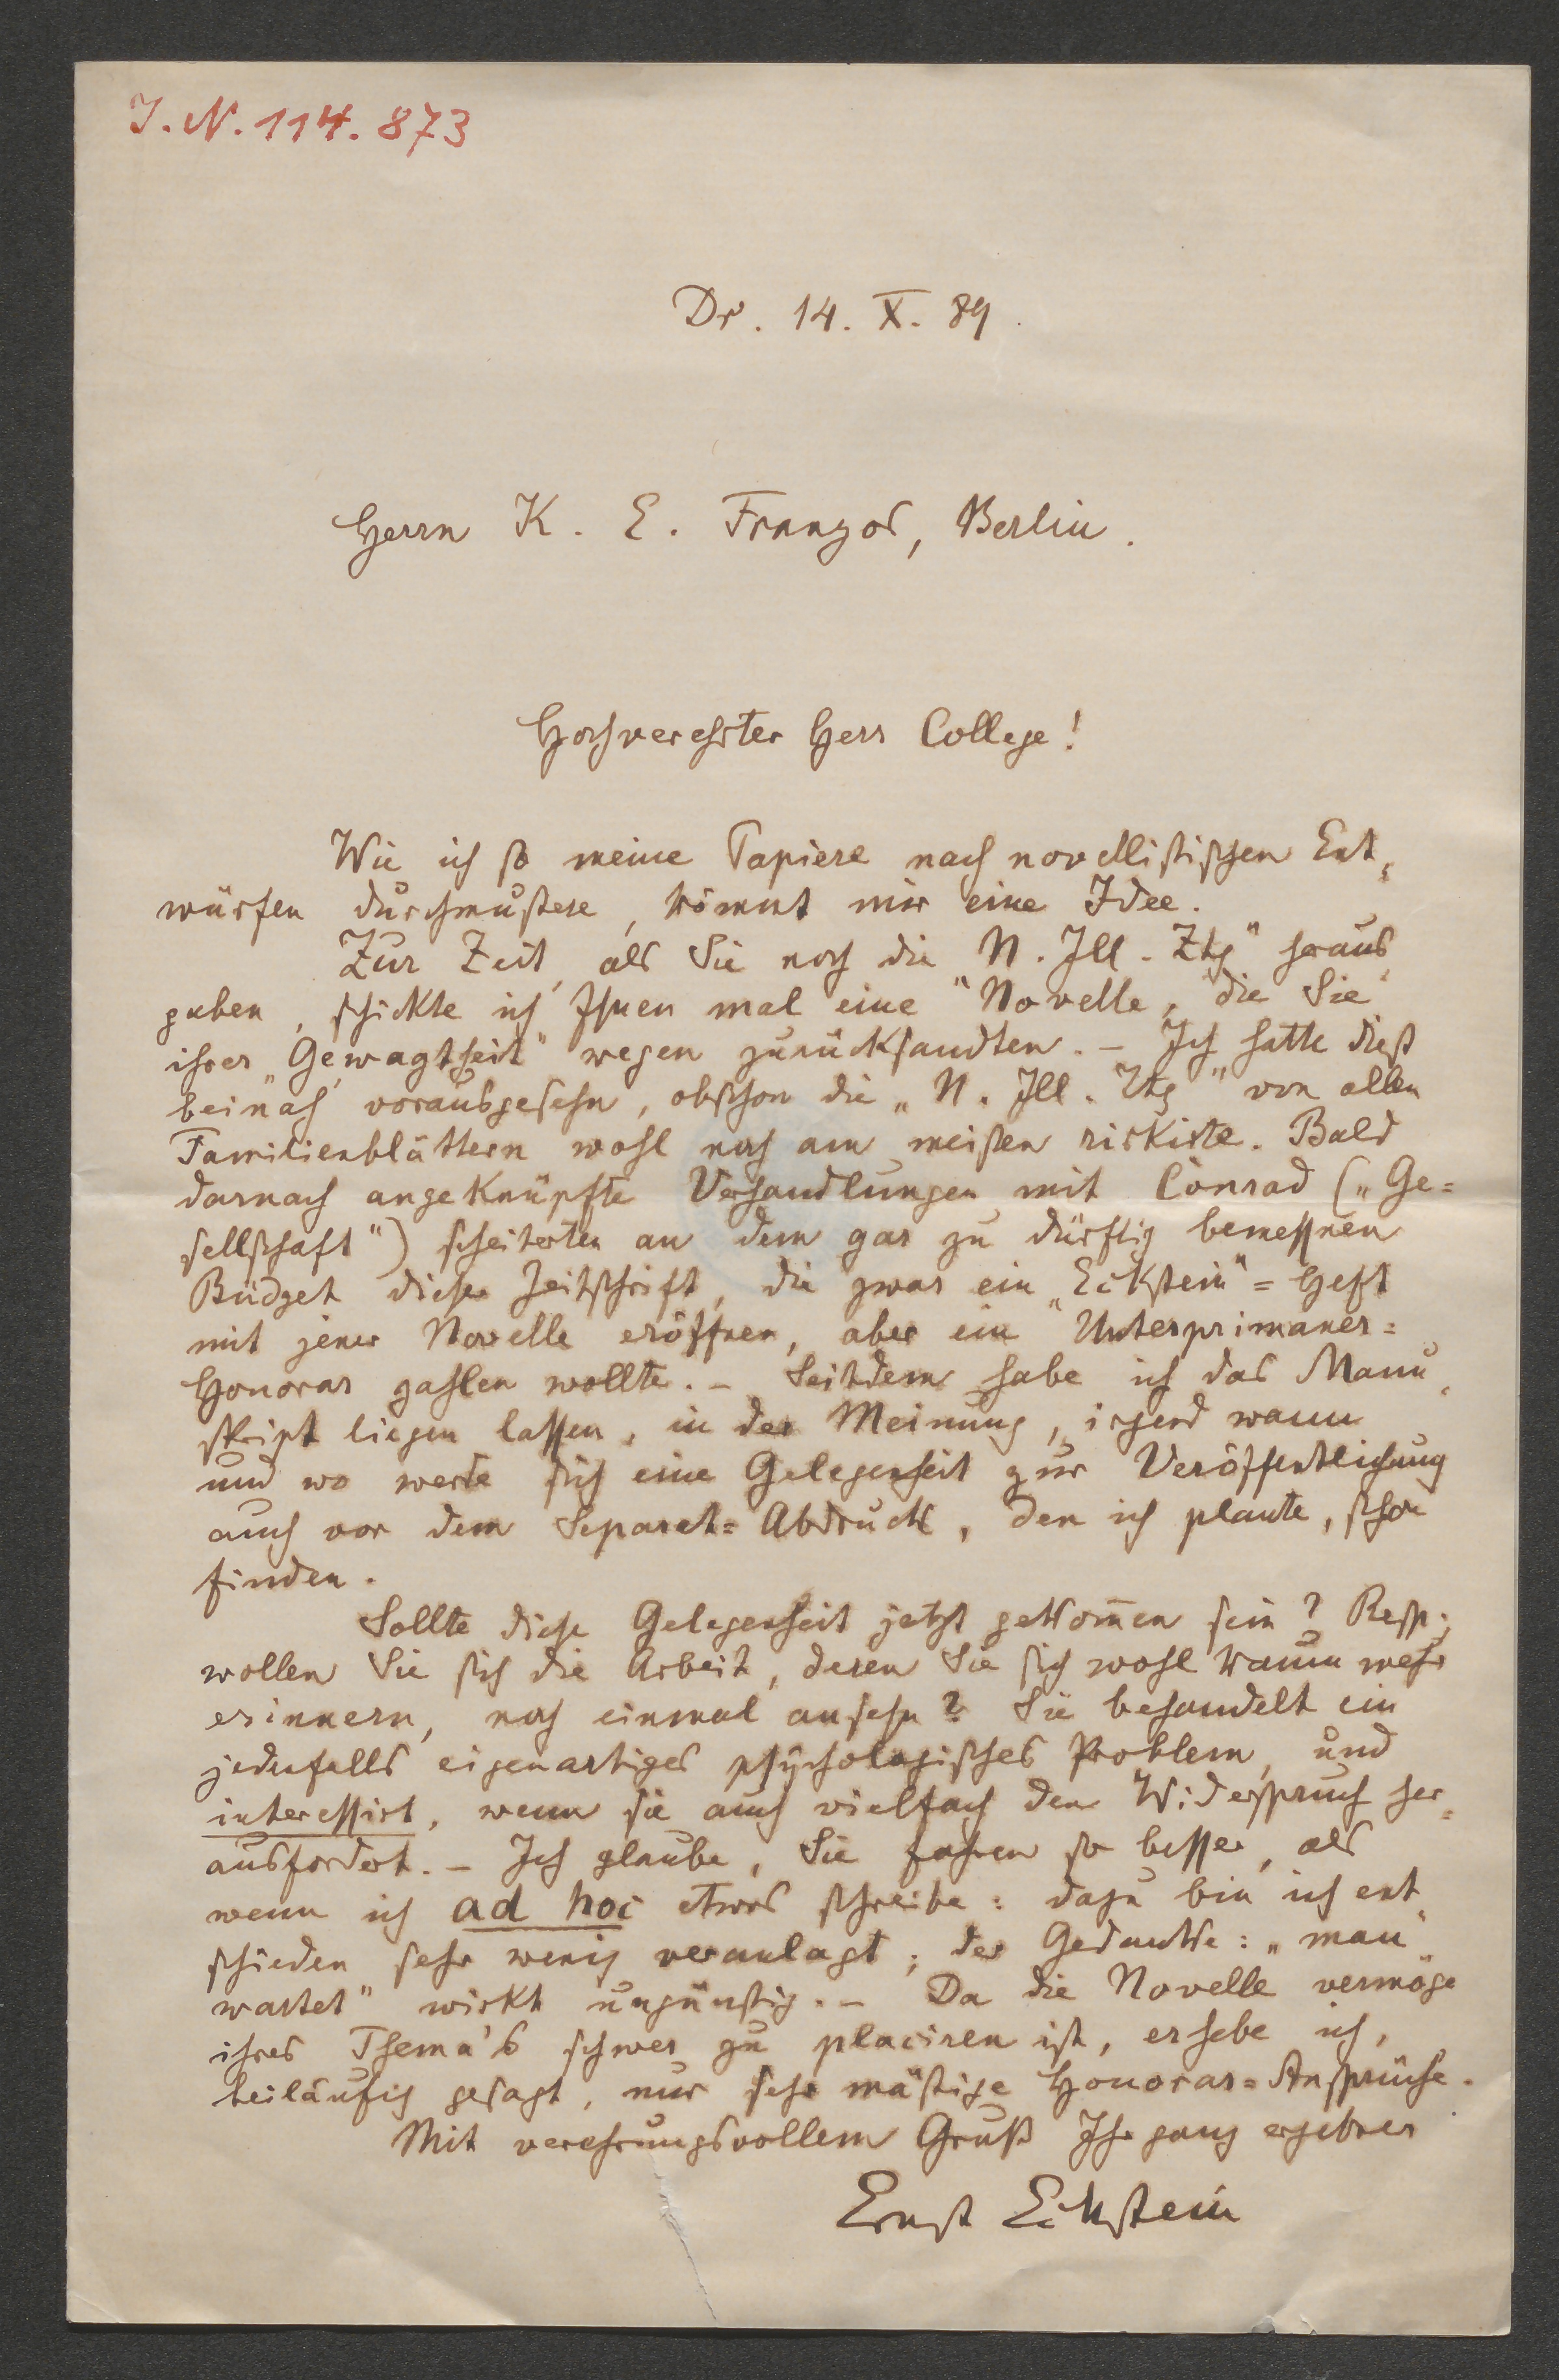 J. N. 114.873
Dr. 14. X. 89.
Herrn K. E. Franzos, Berlin.
Hochverehrter Herr College!
Wie ich so meine Papiere nach novellistischen Ent-
würfen durchmustere, kömmt mir eine Idee.
Zur Zeit, als Sie noch die „N. Ill. Ztg" heraus-
gaben, schickte ich Ihnen mal eine Novelle, die Sie
ihrer „Gewagtheit" wegen zurücksandten. – Ich hatte dieß
beinah vorausgesehn, obschon die „N. Ill. Ztg" von allen
Familienblättern wohl noch am meisten riskirte. Bald
darnach angeknüpfte Verhandlungen mit Conrad („Ge=
sellschaft") scheiterten an dem gar zu dürftig bemessnen
Büdget dieser Zeitschrift, die zwar ein „Eckstein"=Heft
mit jener Novelle eröffnen, aber ein Unterprimaner=
Honorar zahlen wollte. – Seitdem habe ich das Manu-
skript liegen lassen, in der Meinung, irgend wann
und wo werde sich eine Gelegenheit zur Veröffentlichung
auch vor dem Separat=Abdruck, den ich plante, schon
finden.
Sollte diese Gelegenheit jetzt gekom̄en sein? Resp.
wollen Sie sich die Arbeit, deren Sie sich wohl kaum mehr
erinnern, noch einmal ansehn? Sie behandelt ein
jedenfalls eigenartiges psychologisches Problem, und
interessirt, wenn sie auch vielfach den Widerspruch her=
ausfordert. – Ich glaube, Sie fahren so besser, als
wenn ich ad hoc etwas schreibe: dazu bin ich ent-
schieden sehr wenig veranlagt; der Gedanke: „man
wartet" wirkt ungünstig. – Da die Novelle vermöge
ihres Thema's schwer zu placiren ist, erhebe ich,
beiläufig gesagt, nur sehr mäßige Honorar=Ansprüche.
Mit verehrungsvollem Gruß Ihr ganz ergebner
Ernst Eckstein